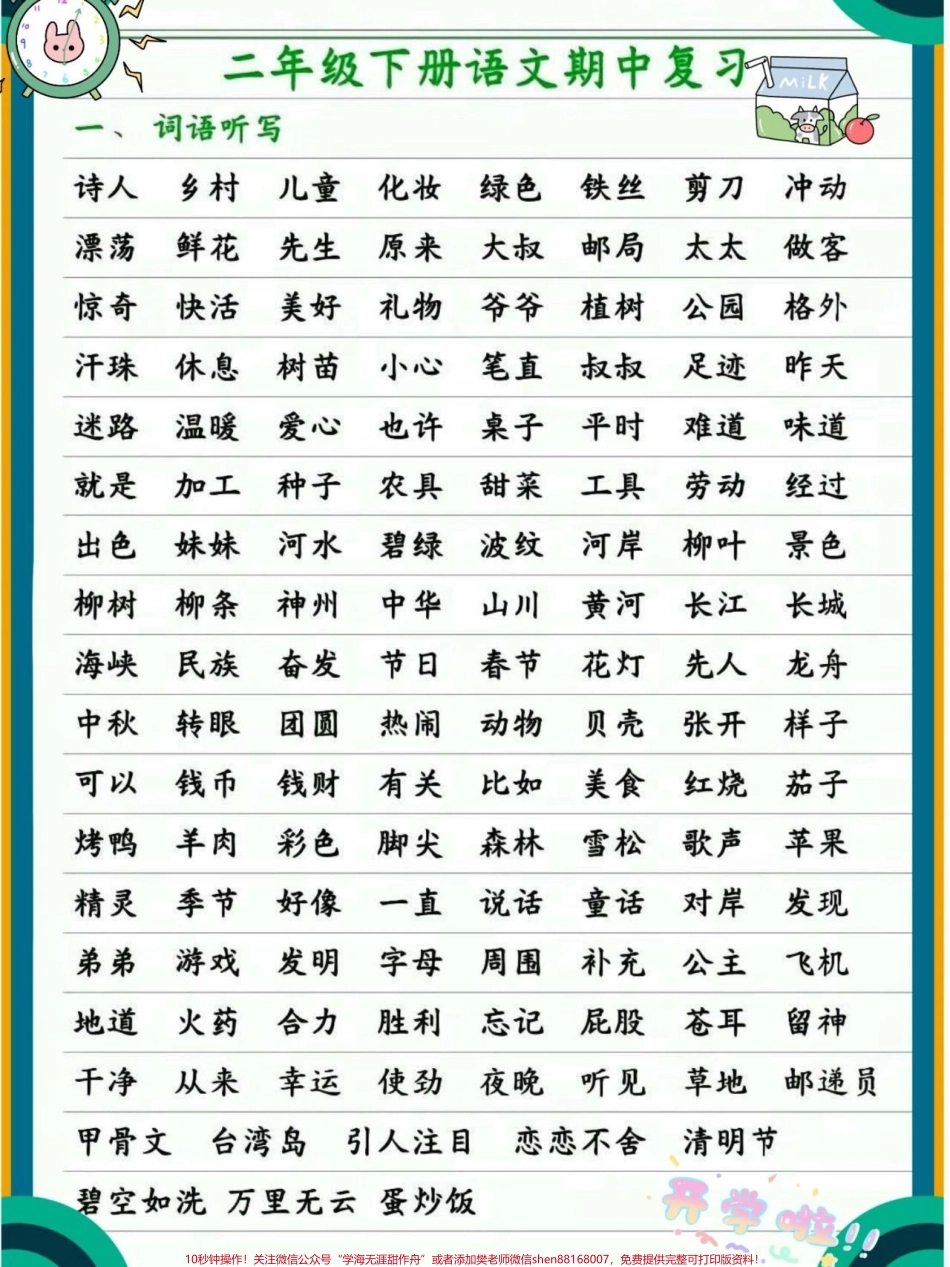 二年级下册语文期中复习
MiLK
一、词语听写
诗人 乡村 儿童 化妆 绿色 铁丝 剪刀 冲动
漂荡 鲜花 先生 原来 大叔 邮局 太太 做客
惊奇 快活 美好 礼物 爷爷 植树 公园 格外
汗珠 休息 树苗 小心 笔直 叔叔 足迹 昨天
迷路 温暖 爱心 也许 桌子 平时 难道 味道
就是 加工 种子 农具 甜菜 工具 劳动 经过
出色 妹妹 河水 碧绿 波纹 河岸 柳叶 景色
柳树 柳条 神州 中华 山川 黄河 长江 长城
海峡 民族 奋发 节日 春节 花灯 先人 龙舟
中秋 转眼 团圆 热闹 动物 贝壳 张开 样子
可以 钱币 钱财 有关 比如 美食 红烧 茄子
烤鸭 羊肉 彩色 脚尖 森林 雪松 歌声 苹果
精灵 季节 好像 一直 说话 童话 对岸 发现
弟弟 游戏 发明 字母 周围 补充 公主 飞机
地道 火药 合力 胜利 忘记 屁股 苍耳 留神
干净 从来 幸运 使劲 夜晚 听见 草地 邮递员
甲骨文 台湾岛 引人注目 恋恋不舍 清明节
碧空如洗 万里无云 蛋炒饭
开学啦!!
10秒钟操作！关注微信公众号“学海无涯甜作舟”或者添加樊老师微信shen88168007，免费提供完整可打印版资料！